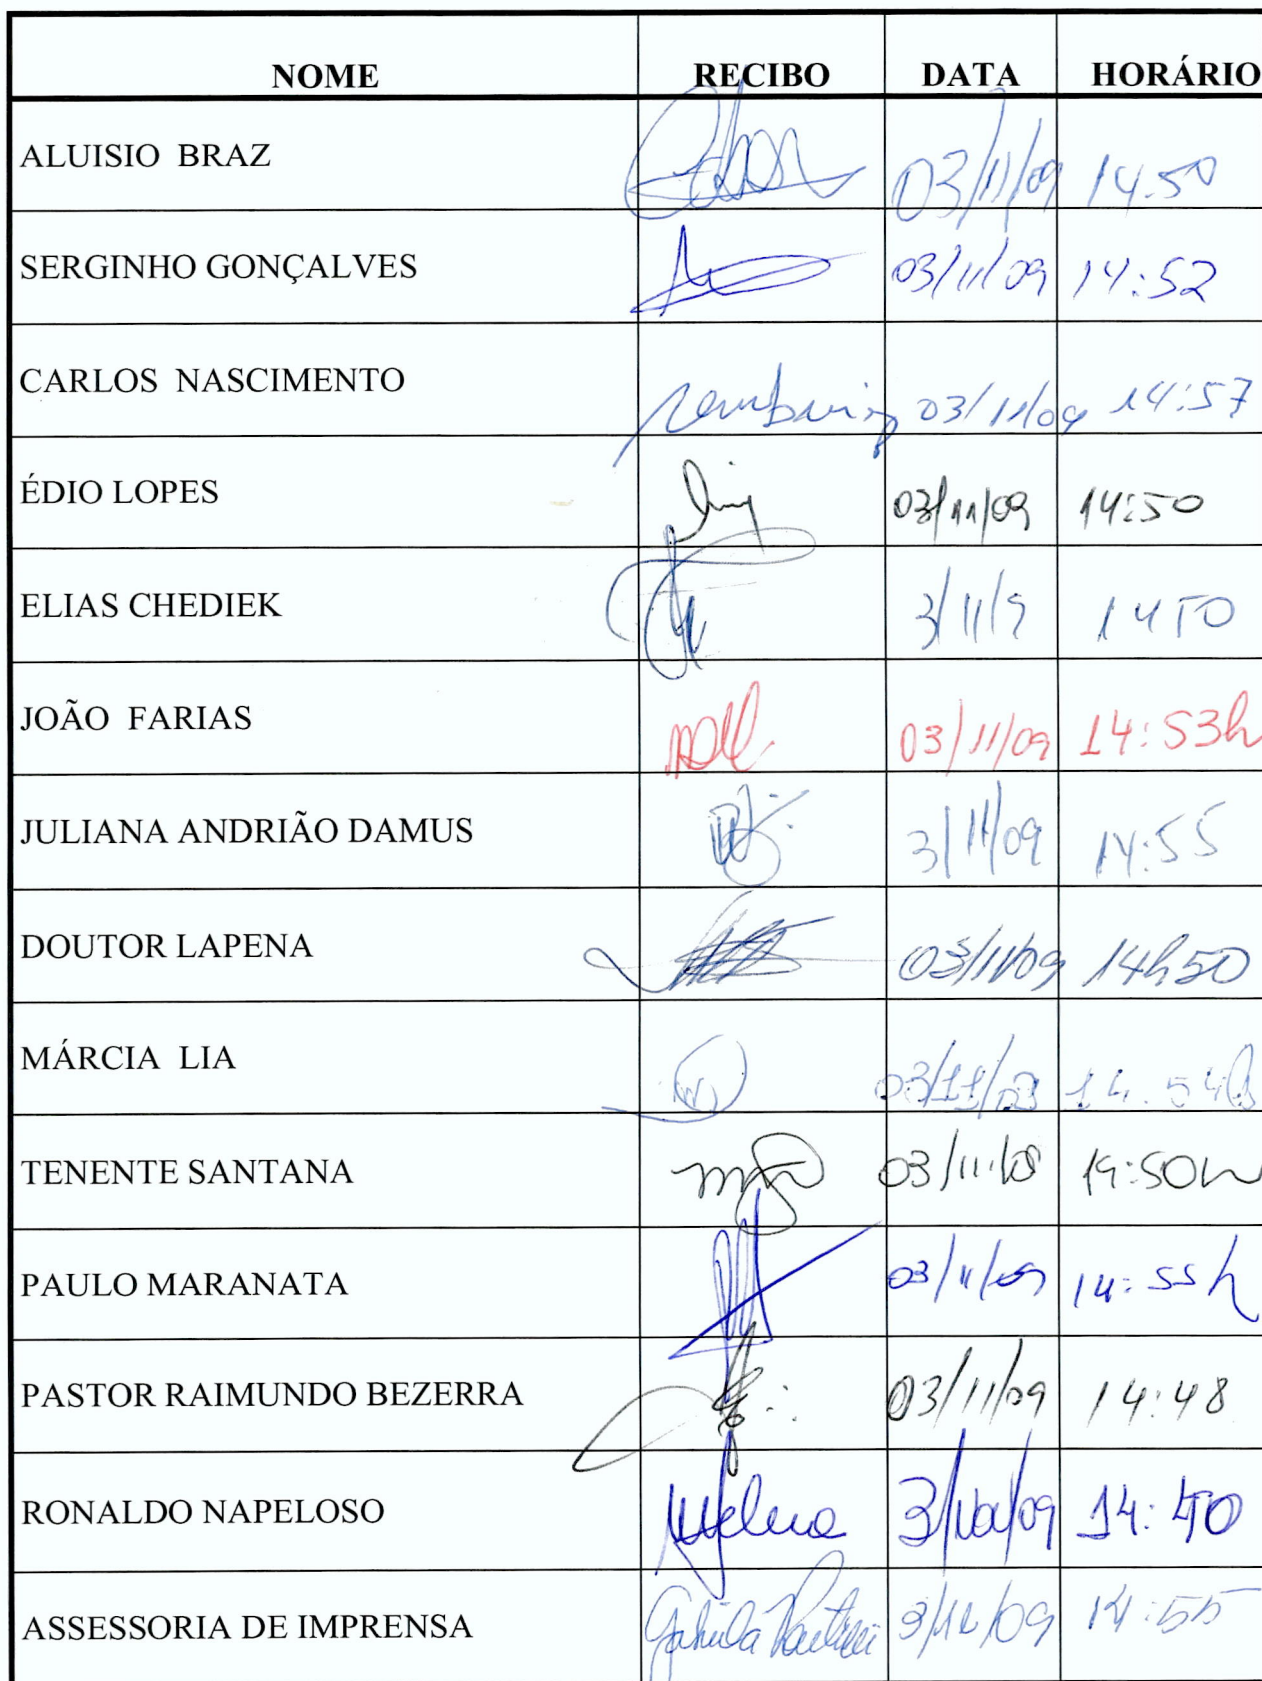 NOME RECIBO DATA HORÁRIO
ALUISIO BRAZ 03/11/09 14:50
SERGINHO GONÇALVES 03/11/09 14:52
CARLOS NASCIMENTO 03/11/09 14:57
ÉDIO LOPES 03/11/09 14:50
ELIAS CHEDIEK 3/11/9 1450
JOÃO FARIAS 03/11/09 14:53h
JULIANA ANDRIÃO DAMUS 3/11/09 14:55
DOUTOR LAPENA 03/11/09 14h50
MÁRCIA LIA 14:54h
TENENTE SANTANA
PAULO MARANATA 03/11/09 14:55h
PASTOR RAIMUNDO BEZERRA 03/11/09 14:48
RONALDO NAPELOSO 14:40
ASSESSORIA DE IMPRENSA 3/11/09 14:55